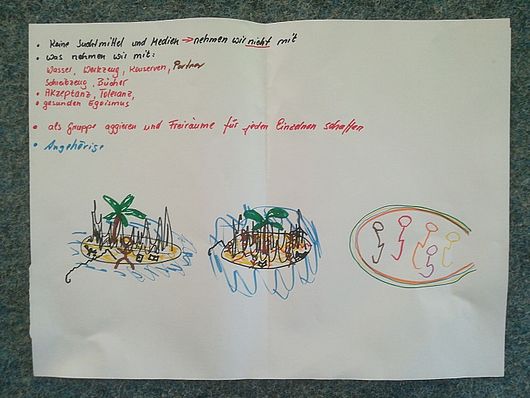 • Keine Suchtmittel und Medien → nehmen wir nicht mit
• was nehmen wir mit:
Wasser, Werkzeug, Konserven, Partner
Schreibzeug, Bücher
• Akzeptanz, Toleranz,
• gesunden Egoismus
• als Gruppe aggieren und Freiräume für jeden Einzelnen schaffen
• Angehörige